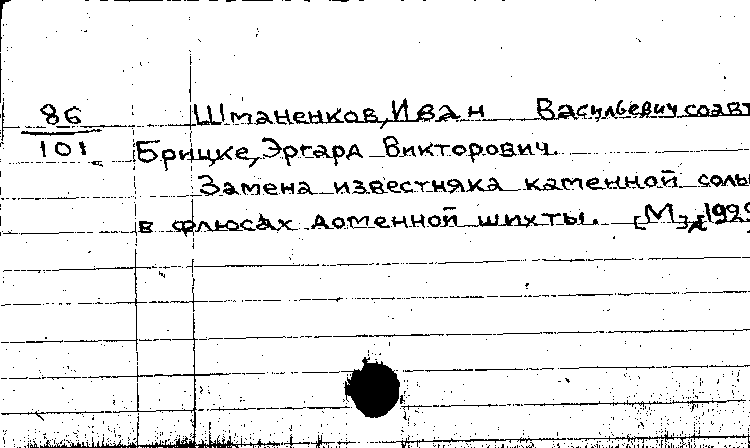 86
101
Шманенков, Иван Васильевич соавт
Брицке, Эргард Викторович.
Замена известняка каменной солью
в флюсах доменной шихты. [М.],